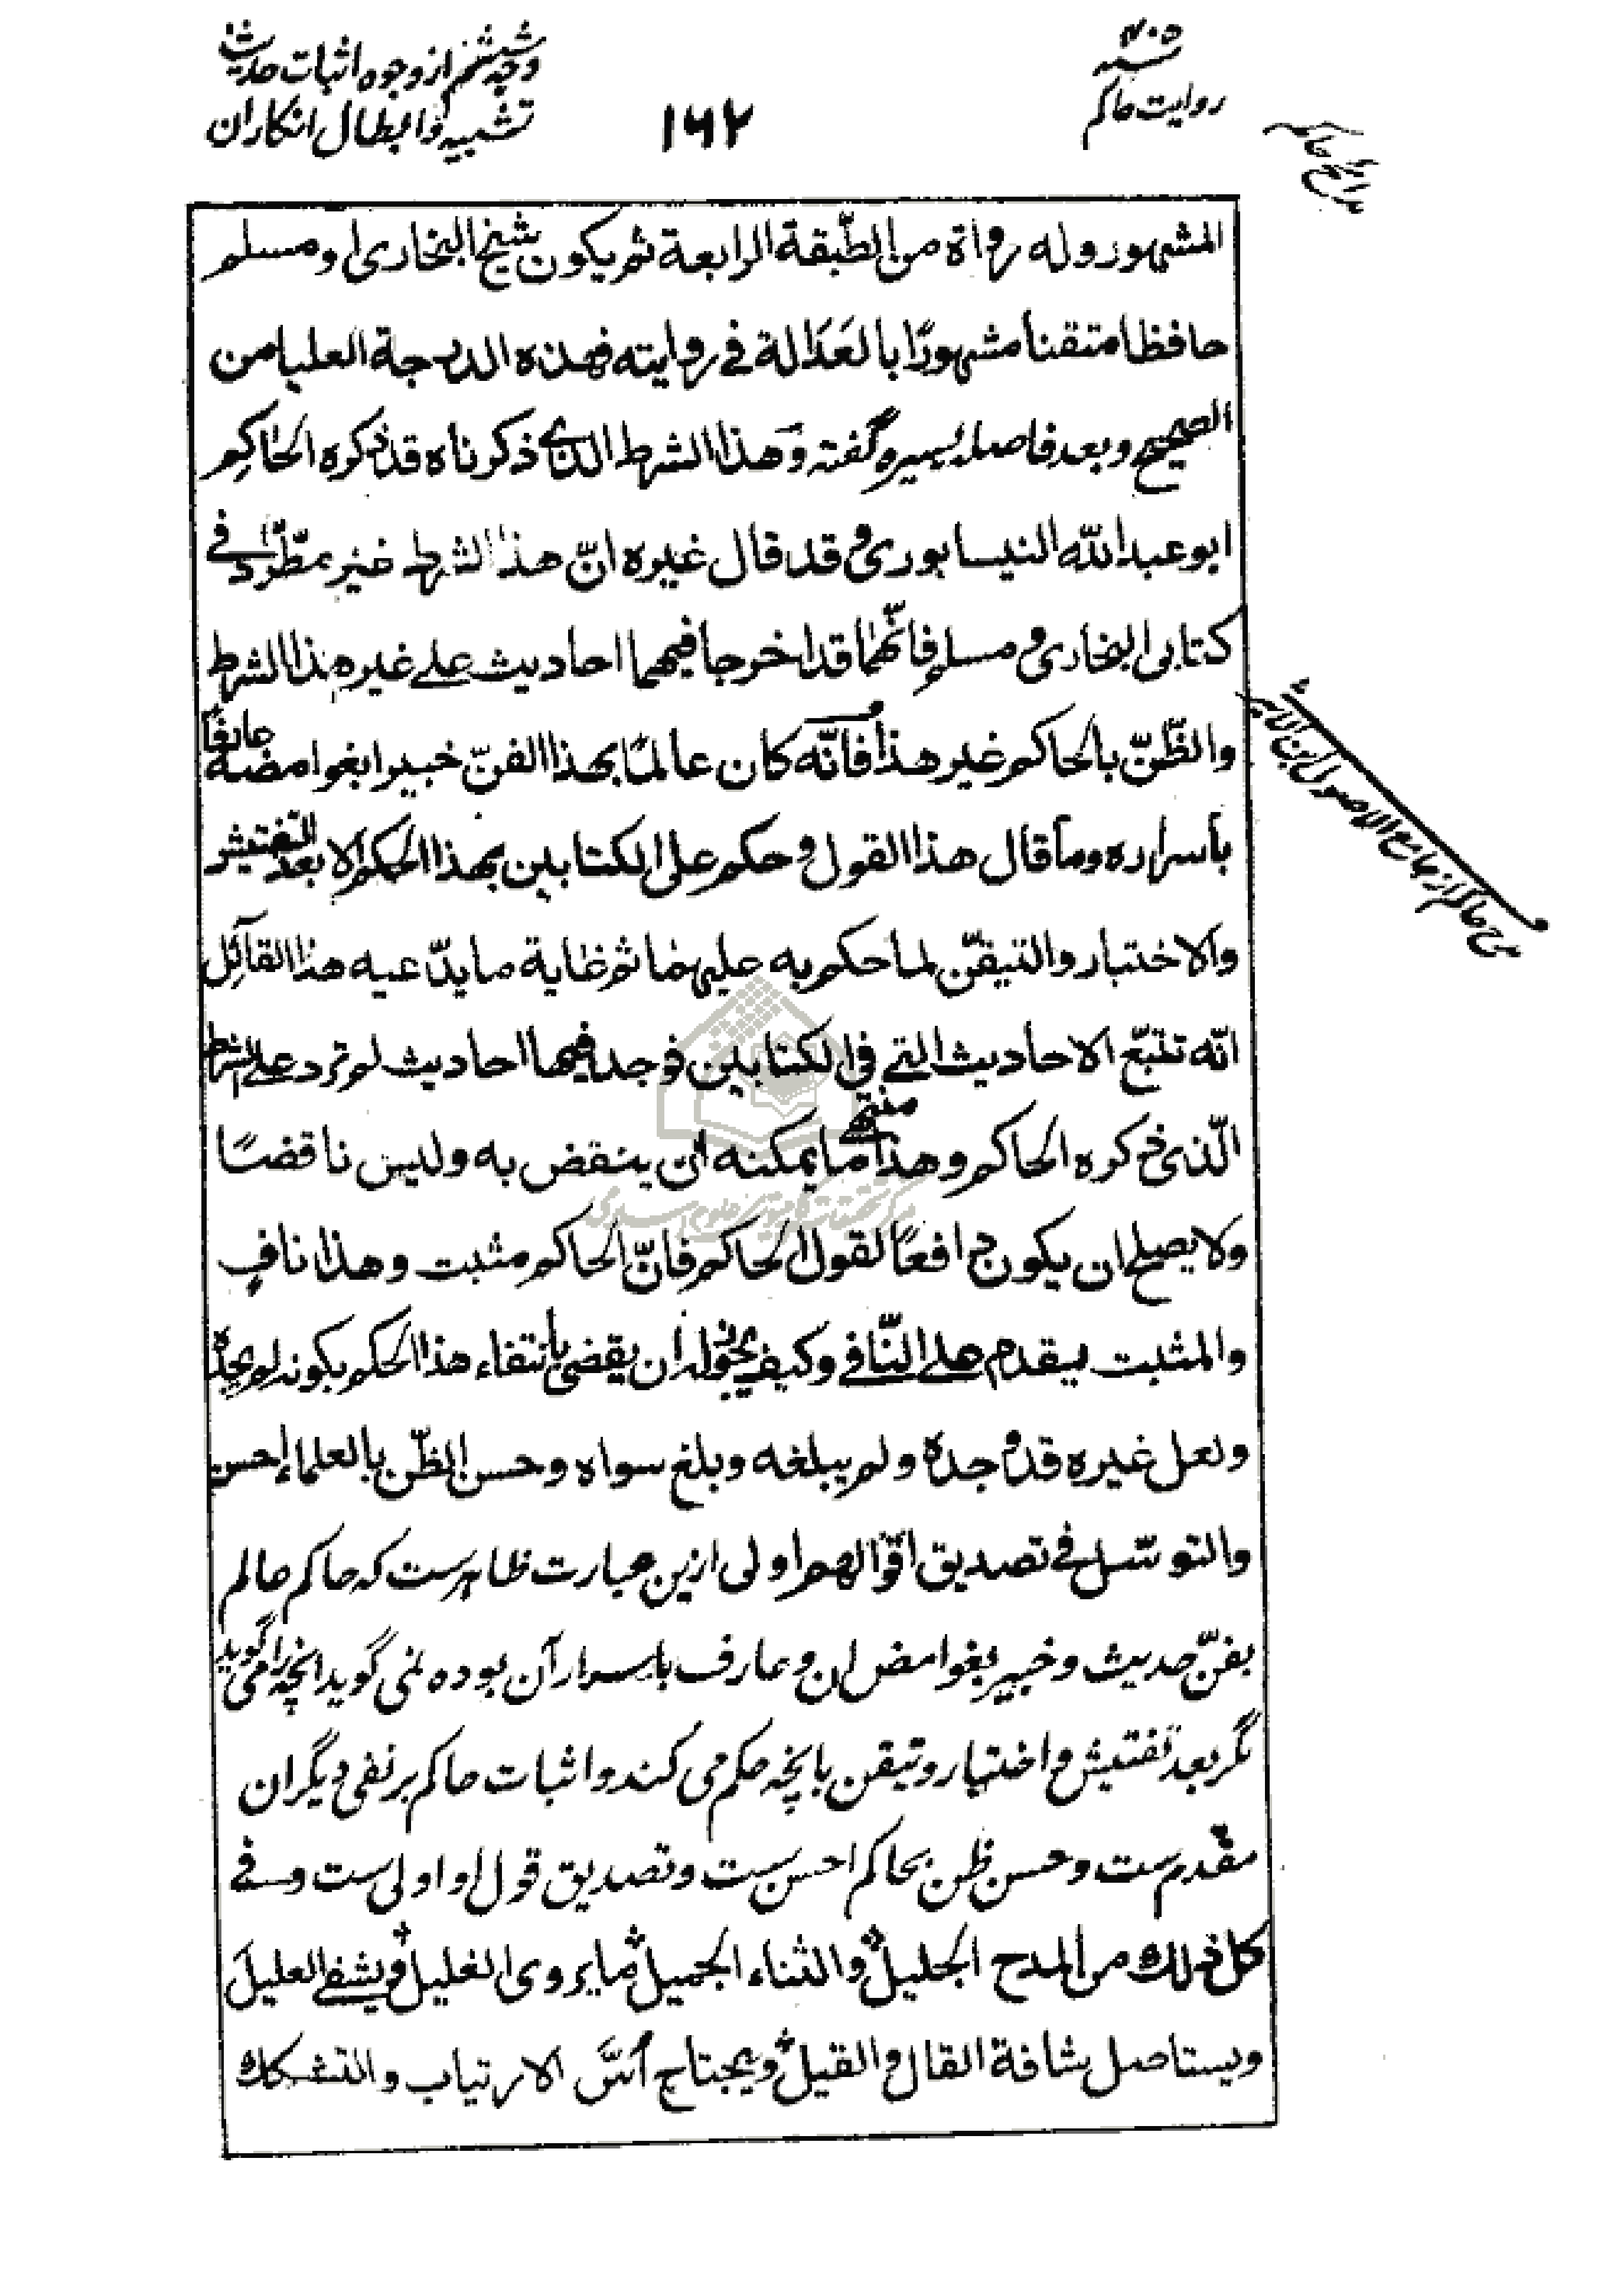 سنه ۴۰۵
روایت حاکم
۱۶۲
وجه ششم از وجوه اثبات حدیث
تشبیه و ابطال انکاران
مدایح حاکم
المشهور وله رواة من الطّبقة الرابعة ثم يكون شيخ البخارى او مسلم
حافظا متقنا مشهورًا بالعَدَالة فی روايته فهذه الدرجة العليا من
الصحيح وبعد فاصله يسيره گفته وهذا الشرط الذی ذكرناه قد ذكره الحاكم
ابو عبد اللّه النيسابورى وقد قال غيره انّ هذا الشرط غير مطّرد فی
كتابى البخارى ومسلم فانّهما قد اخرجا فيهما احاديث علی غير هذا الشرط
والظّنّ بالحاكم غير هذا فانّه كان عالمًا بهذا الفنّ خبيرا بغوامضه عارفًا
بأسراره وما قال هذا القول وحكم على الكتابين بهذا الحكم الا بعد التفتيش
والاختبار والتيقّن لما حكم به عليهما ثم غاية ما يدّعيه هذا القآئل
انّه تتبّع الاحاديث التی فی الكتابين فوجد فيهما احاديث لم ترد علی الشرط
الّذى ذكره الحاكم وهذا منتهی ما يمكنه ان ينقض به وليس ناقضًا
ولا يصلح ان يكون دافعًا لقول الحاكم فانّ الحاكم مثبت وهذا نافٍ
والمثبت يقدم علی النّافی وكيف يجوز له ان يقضى بانتفاء هذا الحكم بكونه لم يجده
ولعل غيره قد وجده ولم يبلغه وبلغ سواه وحسن الظّن بالعلماء احسن
والتوسّل فی تصديق اقوالهم اولى ازين عبارت ظاهرست كه حاكم عالم
بفنّ حديث وخبير بغوامض ان وعارف باسرار آن بوده نمی گويد انچه را می گويد
مگر بعد تفتيش و اختبار و تيقن بانچه حكم می كند و اثبات حاكم بر نفی ديگران
مقدم ست و حسن ظن بحاكم احسن ست و تصديق قول او اولى ست وفی
كل ذلك من المدح الجليل والثناء الجميل ما يروى الغليل ويشفی العليل
ويستاصل شافة القال والقيل ويجتاح أسَّ الارتياب والتشكك
مدح حاکم از جامع الاصول ابن الاثیر